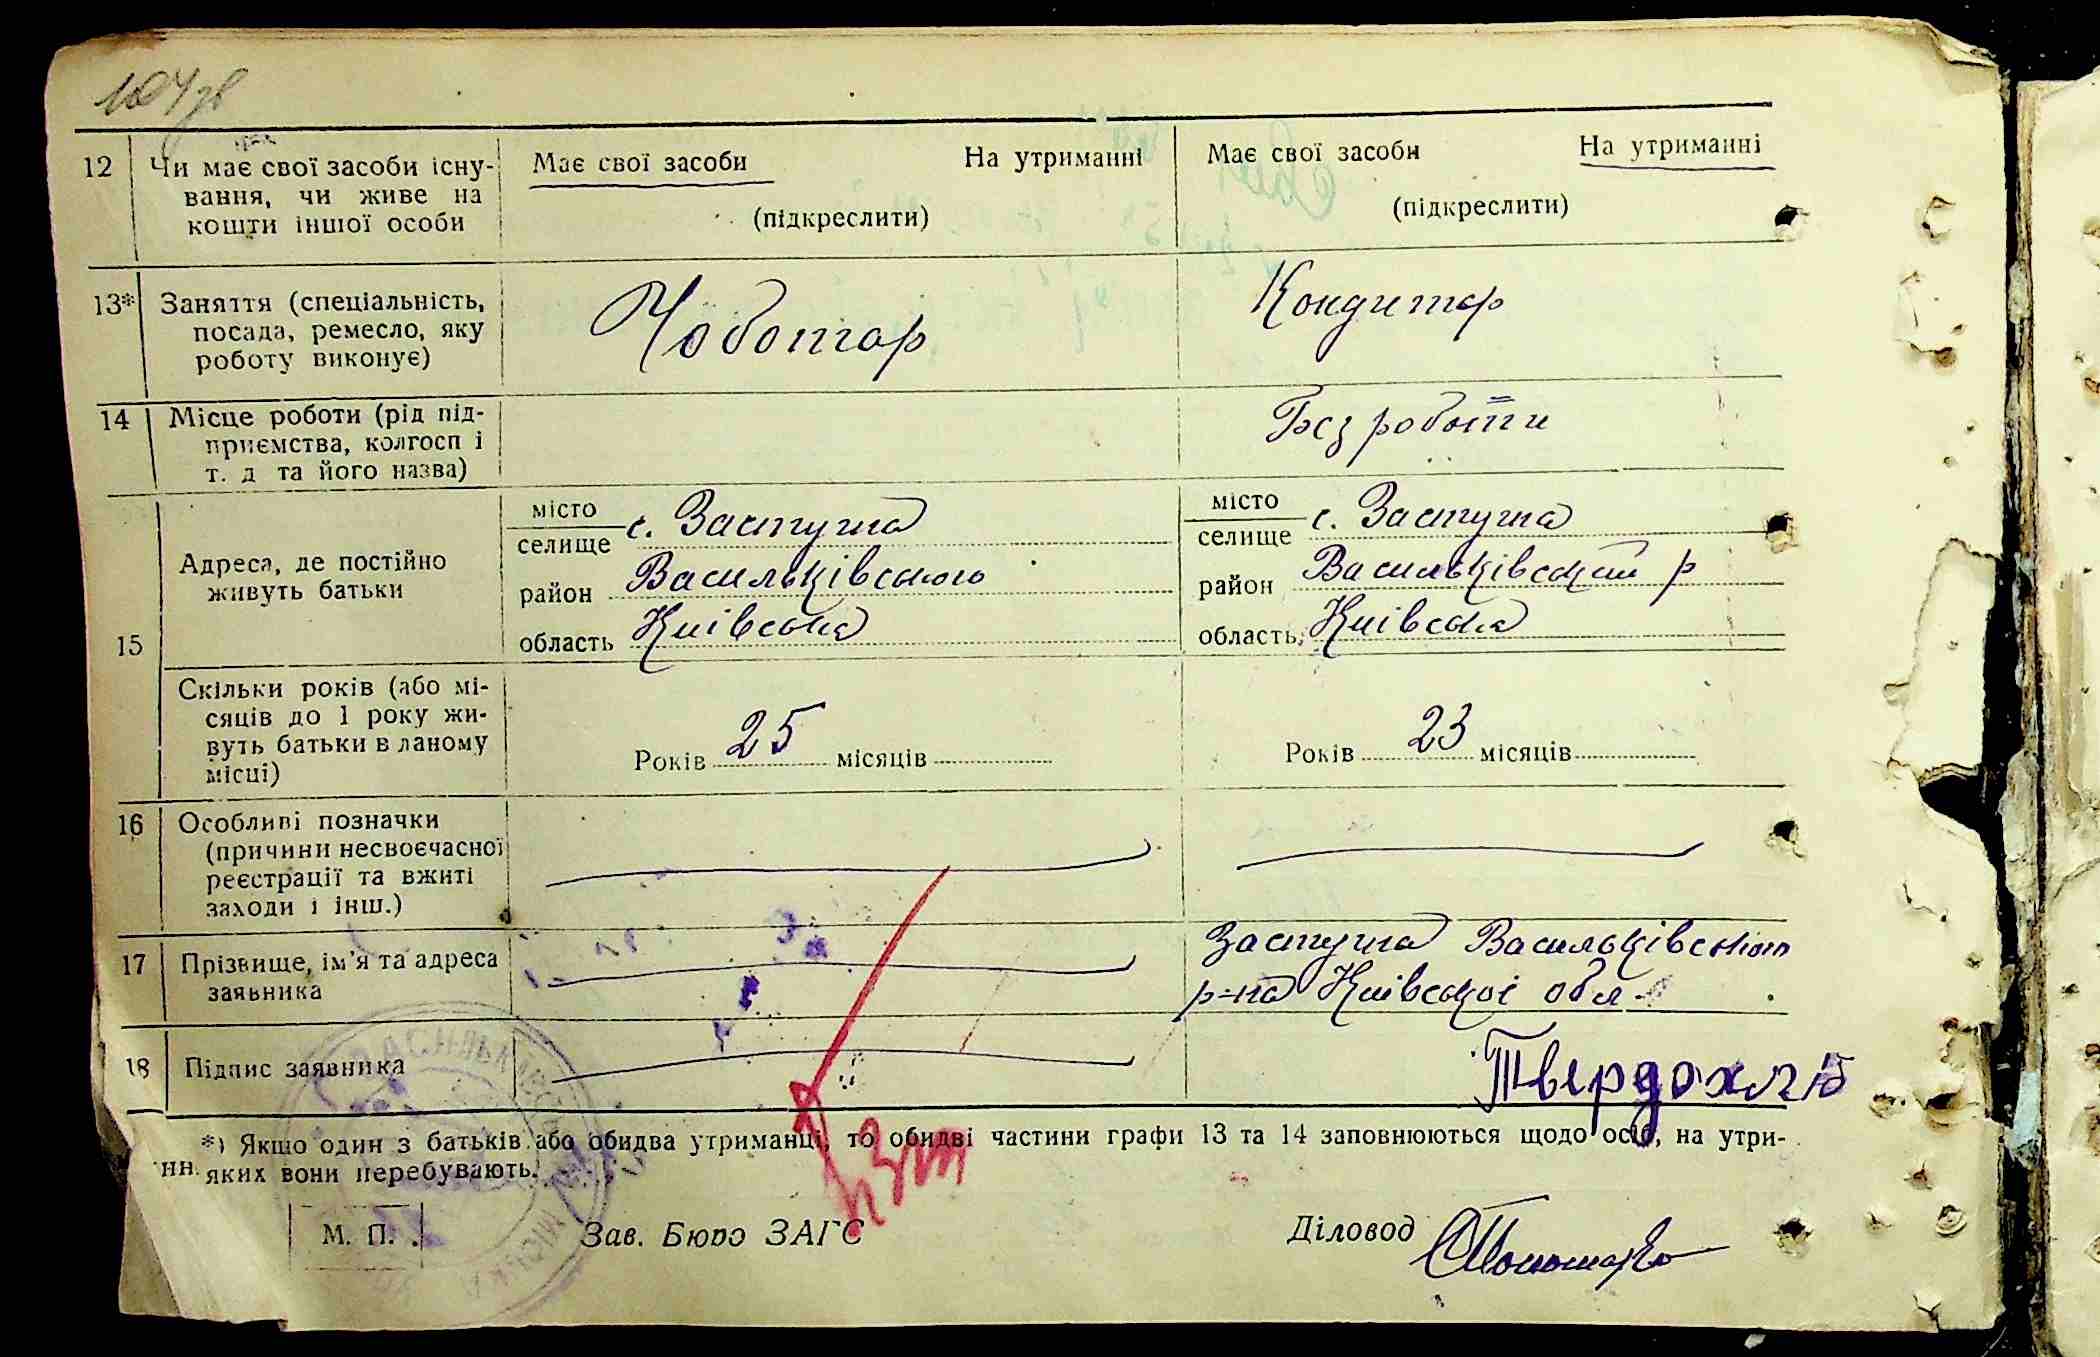 104зв
12 Чи має свої засоби існу-
вання, чи живе на
кошти іншої особи
Має свої засоби На утриманні
(підкреслити)
Має свої засоби На утриманні
(підкреслити)
13* Заняття (спеціальність,
посада, ремесло, яку
роботу виконує)
Чоботар
Кондитор
14 Місце роботи (рід під-
приємства, колгосп і
т. д та його назва)
Без роботи
15 Адреса, де постійно
живуть батьки
місто
селище с. Застугна
район Васильківського
область Київська
місто
селище с. Застугна
район Васильківський р
область Київська
Скільки років (або мі-
сяців до 1 року жи-
вуть батьки в даному
місці)
Років 25 місяців
Років 23 місяців
16 Особливі позначки
(причини несвоєчасної
реєстрації та вжиті
заходи і інш.)
17 Прізвище, ім'я та адреса
заявника
Застугна Васильківского
р-на Київскої обл.
18 Підпис заявника
Твердохліб
*) Якщо один з батьків або обидва утриманці, то обидві частини графи 13 та 14 заповнюються щодо осіб, на утри-
нн. яких вони перебувають.
М. П.
Зав. Бюро ЗАГС
Діловод